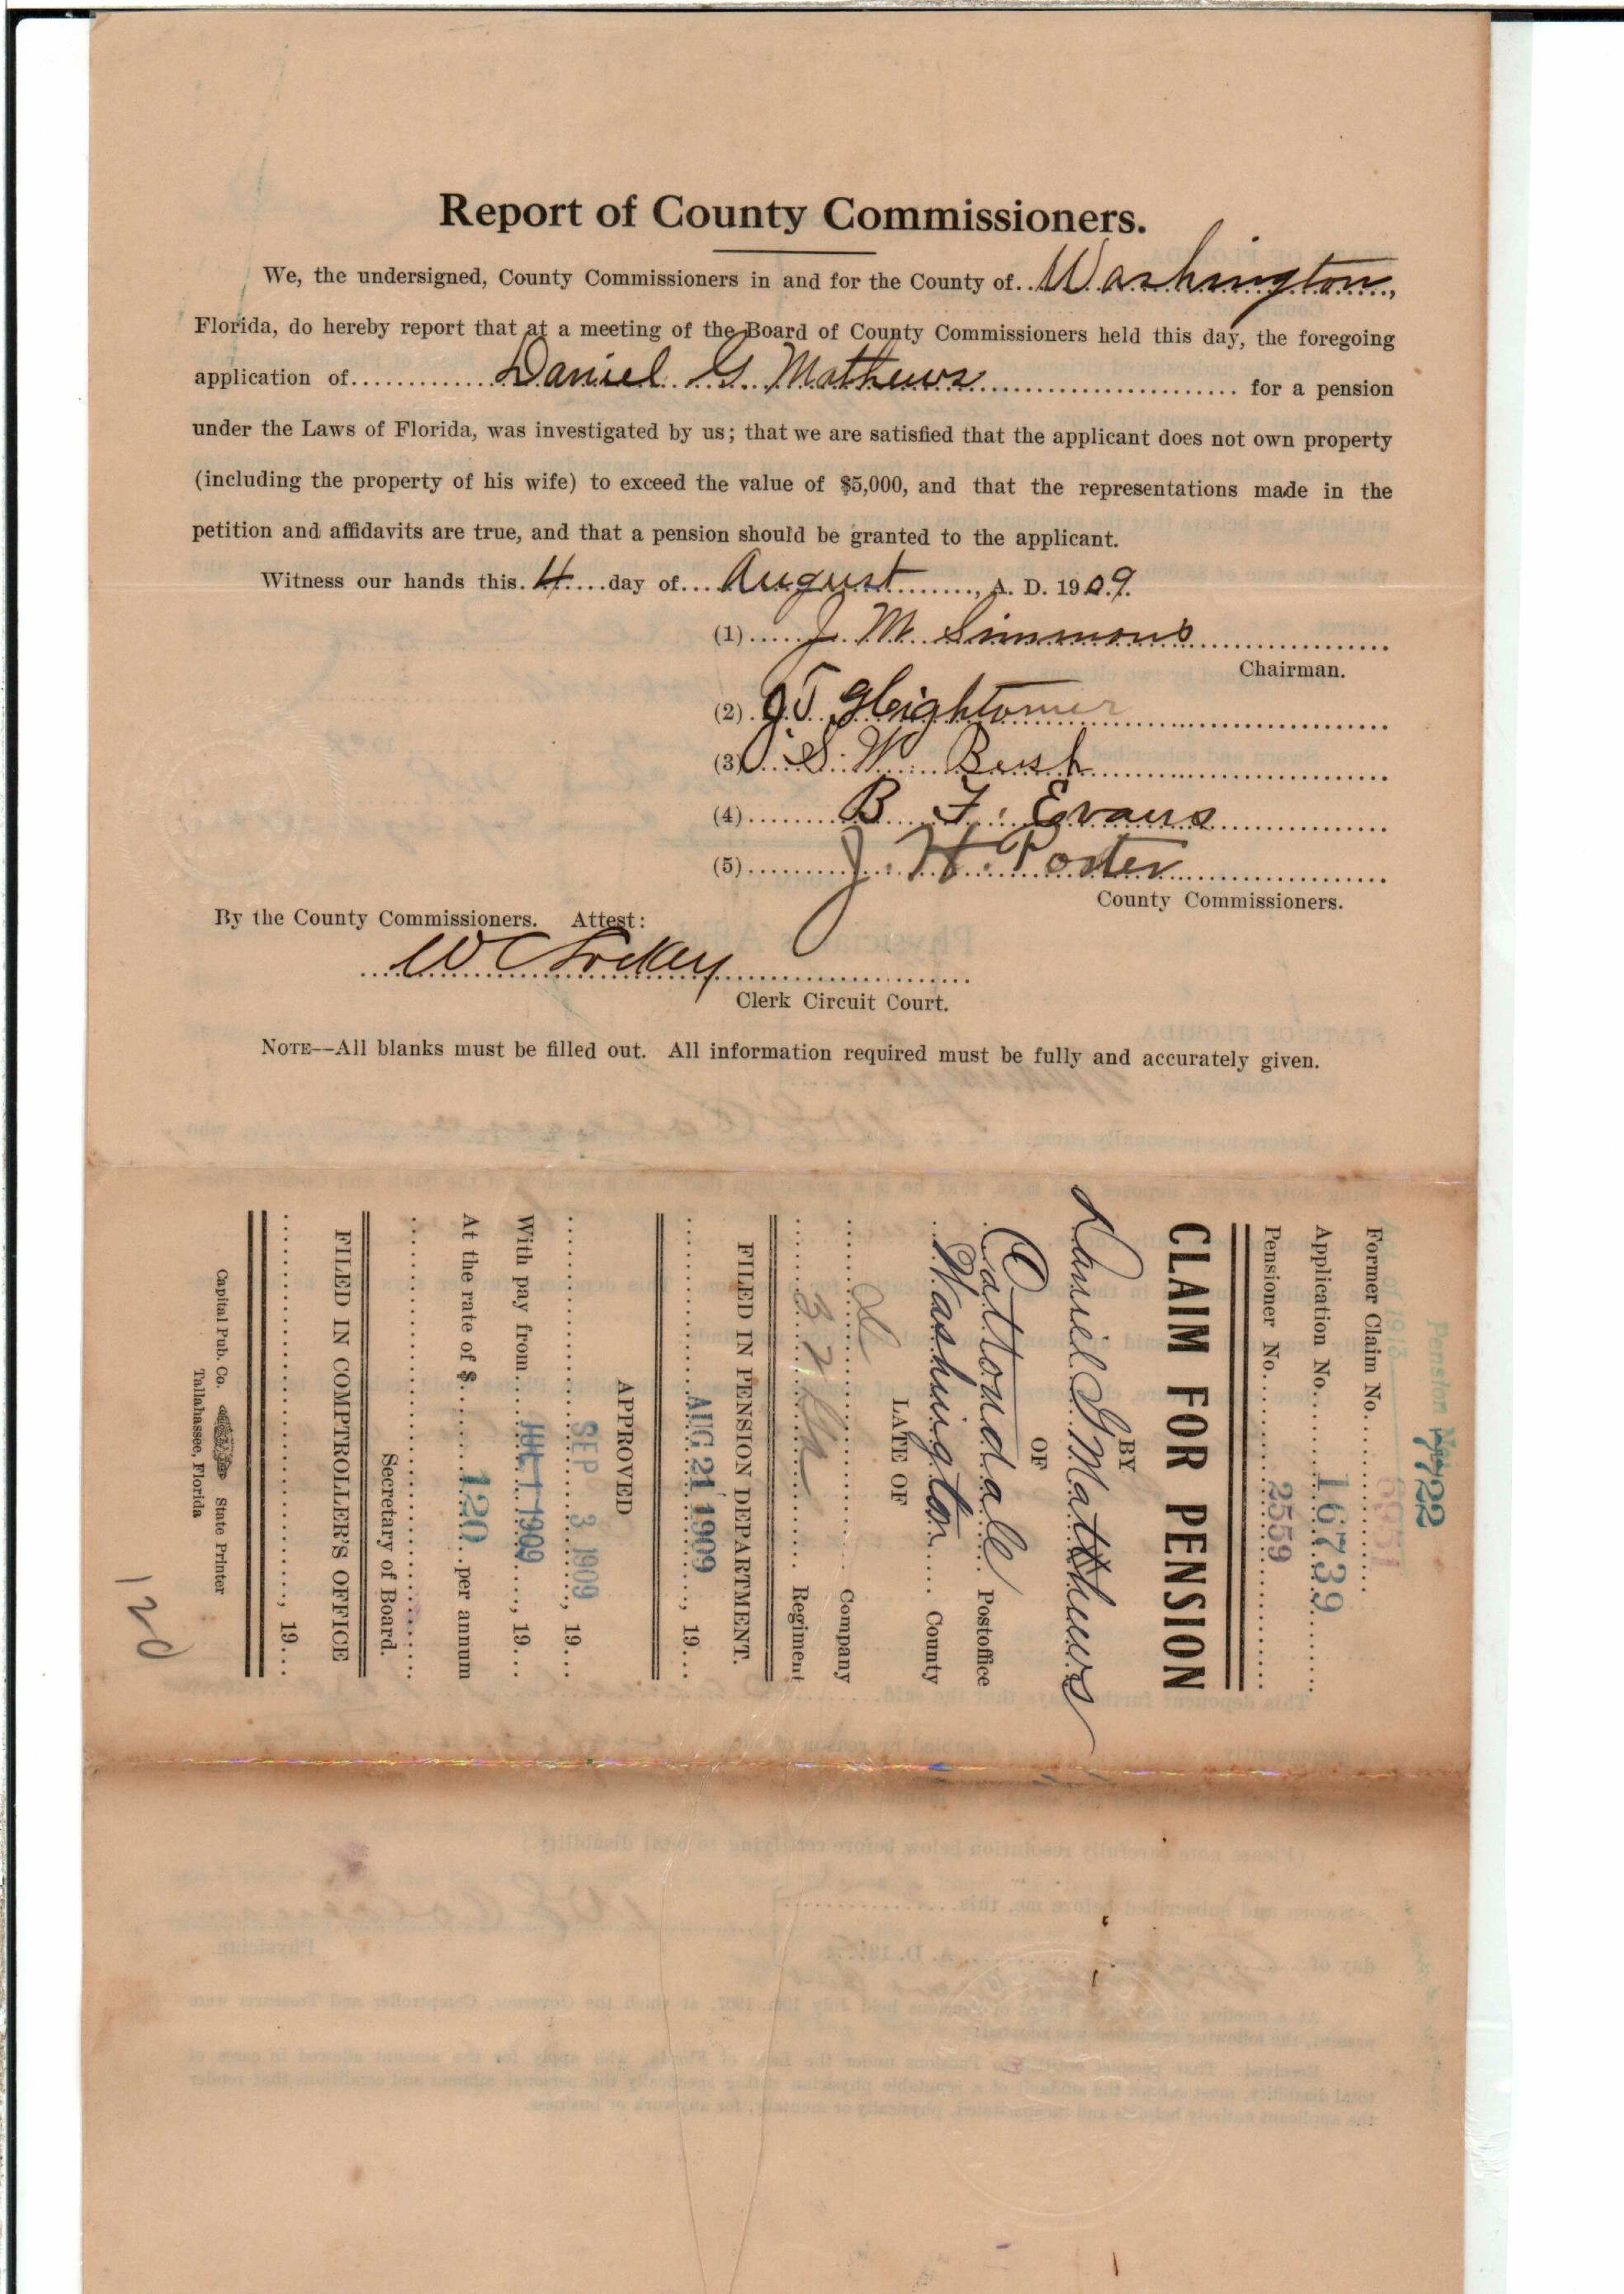 Report of County Commissioners.
We, the undersigned, County Commissioners in and for the County of Washington,
Florida, do hereby report that at a meeting of the Board of County Commissioners held this day, the foregoing
application of Daniel G. Mathews for a pension
under the Laws of Florida, was investigated by us; that we are satisfied that the applicant does not own property
(including the property of his wife) to exceed the value of $5,000, and that the representations made in the
petition and affidavits are true, and that a pension should be granted to the applicant.
Witness our hands this 4 day of August, A. D. 1909.
(1) J. M. Simmons
Chairman.
(2) J T Hightower
(3) S. W. Bush
(4) B. F. Evans
(5) J. H. Porter
County Commissioners.
By the County Commissioners. Attest:
W C Lockey
Clerk Circuit Court.
NOTE--All blanks must be filled out. All information required must be fully and accurately given.
Pension No. 7722
Former Claim No.
Application No. 16739
Pensioner No. 2559
CLAIM FOR PENSION
BY
Daniel G Matthews
OF
Cottondale Postoffice
Washington County
LATE OF
Company
Regiment
FILED IN PENSION DEPARTMENT.
AUG 21 1909, 19
APPROVED
SEP 3 1909, 19
With pay from JUL 1 1909, 19
At the rate of $ 120 per annum
Secretary of Board.
FILED IN COMPTROLLER'S OFFICE
, 19
Capital Pub. Co. State Printer
Tallahassee, Florida